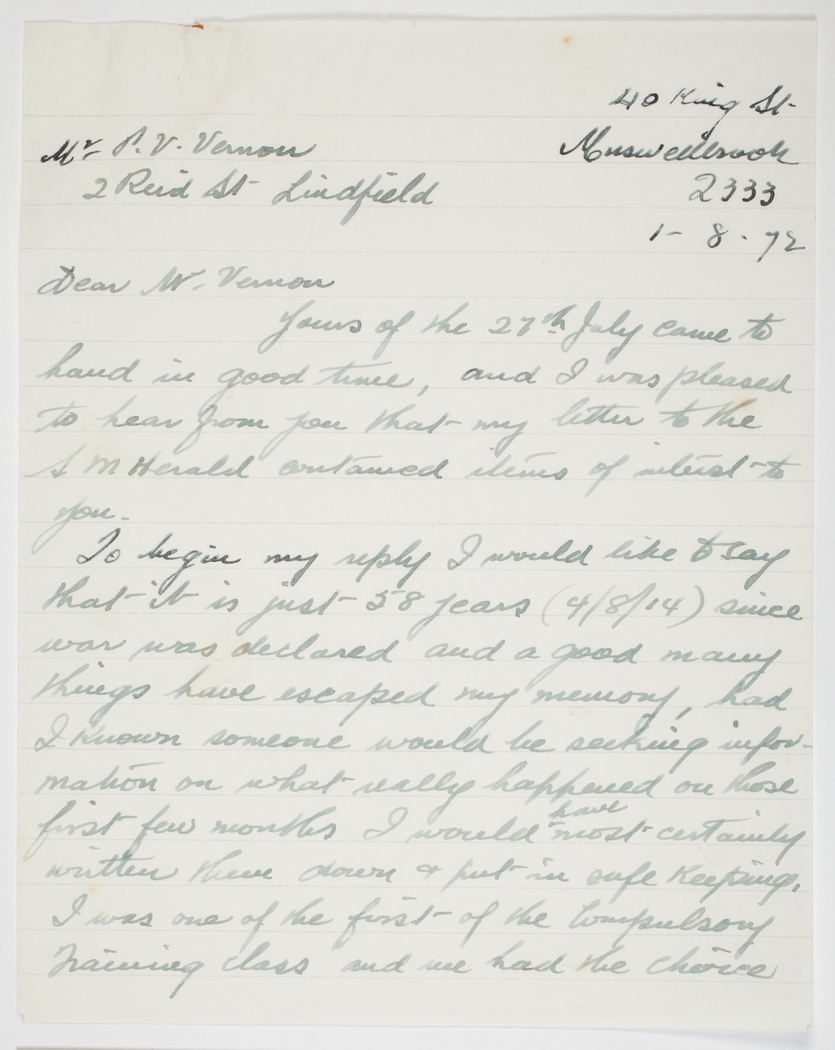 40 King St
Mr P. V. Vernon
Muswellbrook
2 Reid St Lindfield
2333
1 - 8 - 72
Dear Mr. Vernon
Yours of the 27th July came to
hand in good time, and I was pleased
to hear from you that my letter to the
S M Herald contained items of interest to
you.
To begin my reply I would like to say
that it is just 58 years (4/8/14) since
war was declared and a good many
things have escaped my memory, had
I known someone would be seeking infor-
mation on what really happened on those
first few months I would have most certainly
written them down & put in safe keeping.
I was one of the first of the Compulsory
Training class and we had the choice